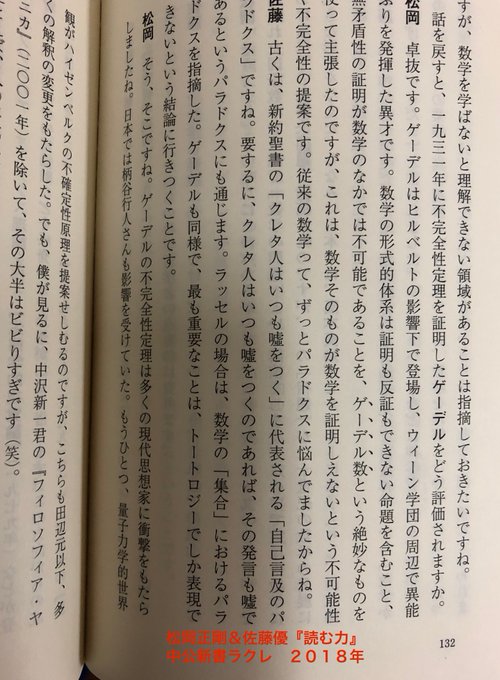 すが、数学を学ばないと理解できない領域があることは指摘しておきたいですね。
話を戻すと、一九三一年に不完全性定理を証明したゲーデルをどう評価されますか。
松岡 卓抜です。ゲーデルはヒルベルトの影響下で登場し、ウィーン学団の周辺で異能
ぶりを発揮した異才です。数学の形式的体系は証明も反証もできない命題を含むこと、
無矛盾性の証明が数学のなかでは不可能であることを、ゲーデル数という絶妙なものを
使って主張したのですが、これは、数学そのものが数学を証明しえないという不可能性
く不完全性の提案です。従来の数学って、ずっとパラドクスに悩んでましたからね。
佐藤 古くは、新約聖書の「クレタ人はいつも嘘をつく」に代表される「自己言及のパ
ラドクス」ですね。要するに、クレタ人はいつも嘘をつくのであれば、その発言も嘘で
あるというパラドクスにも通じます。ラッセルの場合は、数学の「集合」におけるパラ
ドクスを指摘した。ゲーデルも同様で、最も重要なことは、トートロジーでしか表現で
きないという結論に行きつくことです。
松岡 そう、そこですね。ゲーデルの不完全性定理は多くの現代思想家に衝撃をもたら
しましたね。日本では柄谷行人さんも影響を受けていた。もうひとつ、量子力学的世界
観がハイゼンベルクの不確定性原理を提案せしむるのですが、こちらも田辺元以下、多
くの解釈の変更をもたらした。でも、僕が見るに、中沢新一君の『フィロソフィア・ヤ
ニカ』(二〇〇一年)を除いて、その大半はビビりすぎです(笑)。
132
松岡正剛&佐藤優『読む力』
中公新書ラクレ 2018年